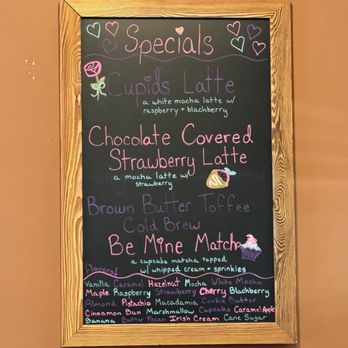 Specials
Cupids Latte
a white mocha latte w/
raspberry + blackberry
Chocolate Covered
Strawberry Latte
a mocha latte w/
strawberry
Brown Butter Toffee
Cold Brew
Be Mine Matcha
a cupcake matcha topped
w/ whipped cream + sprinkles
Flavors
Vanilla Caramel Hazelnut Mocha White Mocha
Maple Raspberry Strawberry Cherry Blackberry
Almond Pistachio Macadamia Cookie Butter
Cinnamon Bun Marshmallow Cupcake Caramel Apple
Banana Butter Pecan Irish Cream Cane Sugar